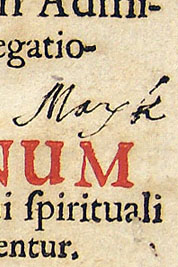 Admi-
egatio-
NUM
i ſpirituali
entur.